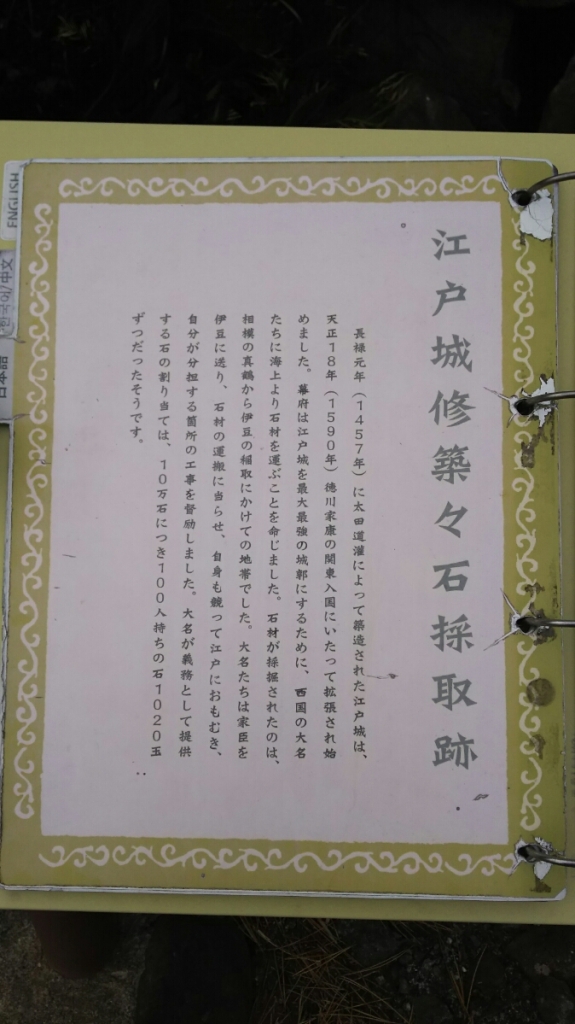 江戸城修築々石採取跡
長禄元年（1457年）に太田道灌によって築造された江戸城は、
天正18年（1590年）徳川家康の関東入国にいたって拡張され始
めました。幕府は江戸城を最大最強の城郭にするために、西国の大名
たちに海上より石材を運ぶことを命じました。石材が採掘されたのは、
相模の真鶴から伊豆の稲取にかけての地帯でした。大名たちは家臣を
伊豆に送り、石材の運搬に当らせ、自身も競って江戸におもむき、
自分が分担する箇所の工事を督励しました。大名が義務として提供
する石の割り当ては、10万石につき100人持ちの石1020玉
ずつだったそうです。
ENGLISH
한국어/中文
日本語